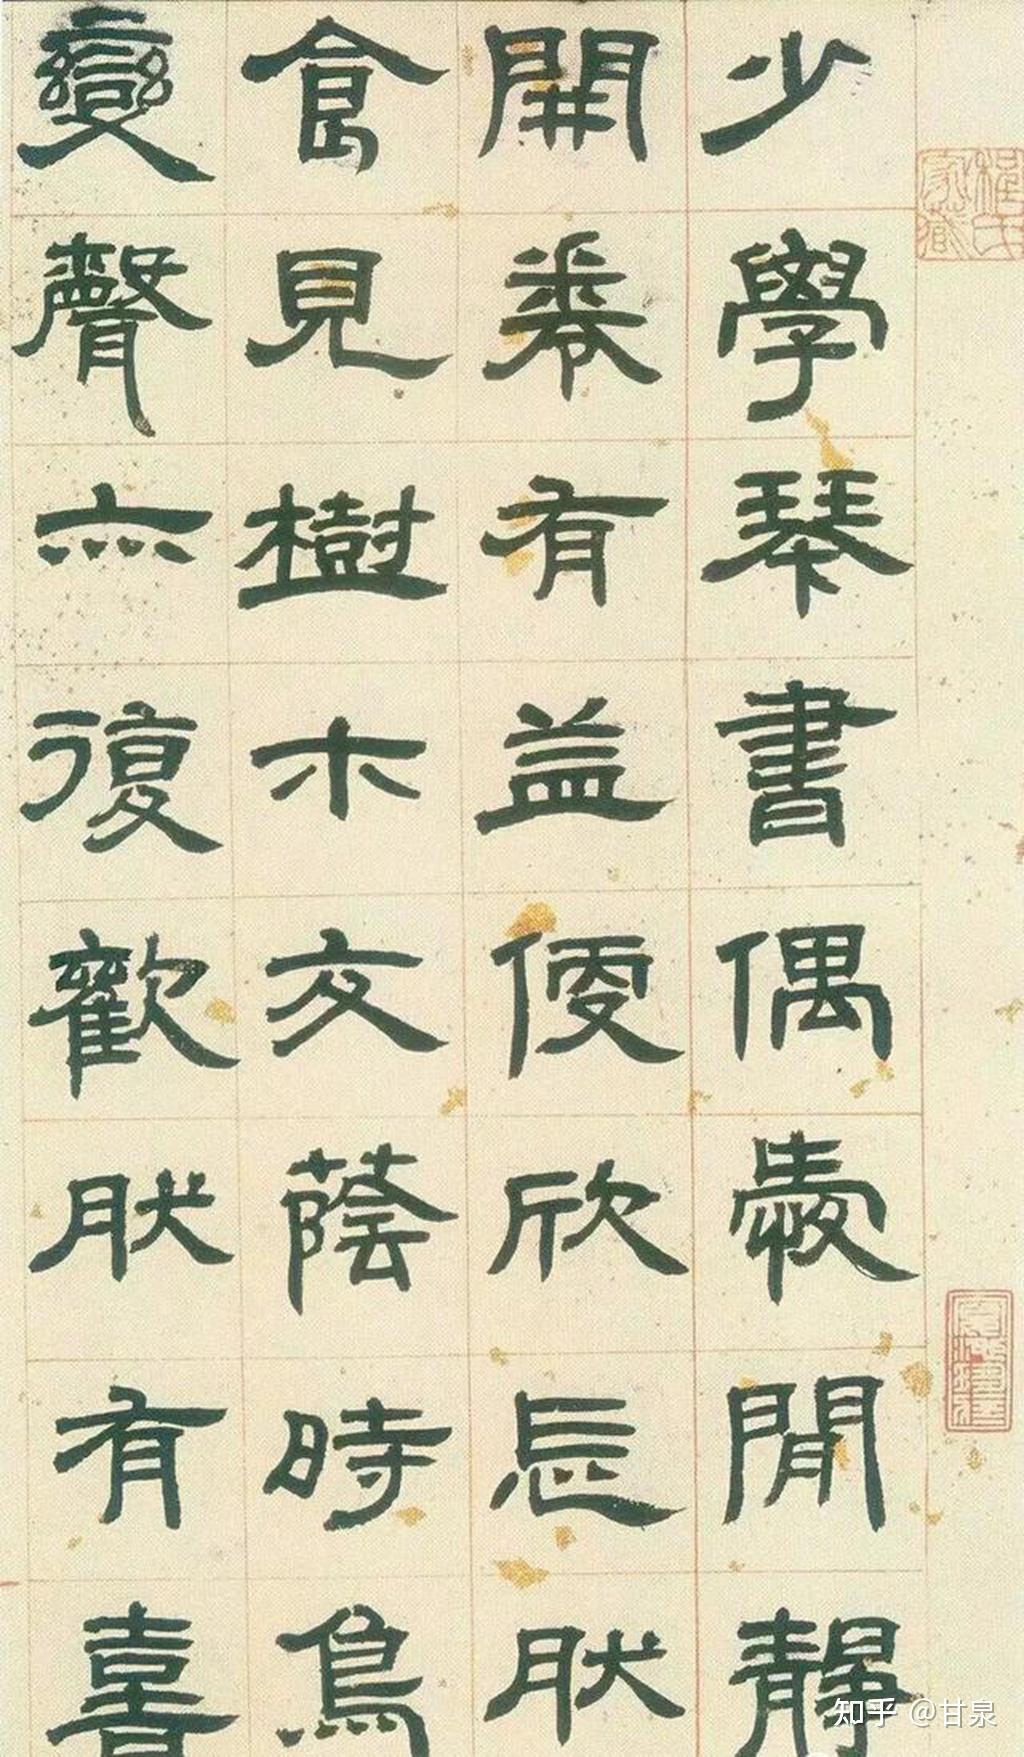 少學琴書偶愛閒靜
開卷有益便欣忘肰
食見樹木交蔭時鳥
變聲亦復歡肰有喜
程氏家藏
知乎 @甘泉